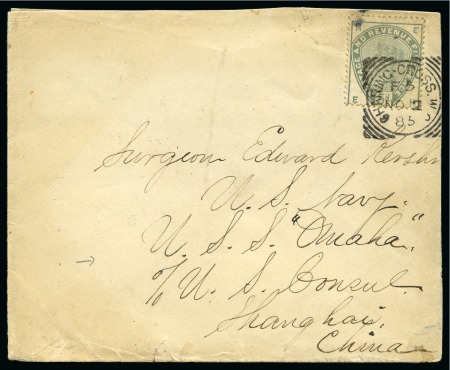 E E
POSTAGE AND REVENUE FIVE
CHARING-CROSS. W.C
NO 12
85
Surgeon Edward Kershn
U. S. Navy.
U. S. S. "Omaha".
c/o U. S. Consul.
Shanghai.
China